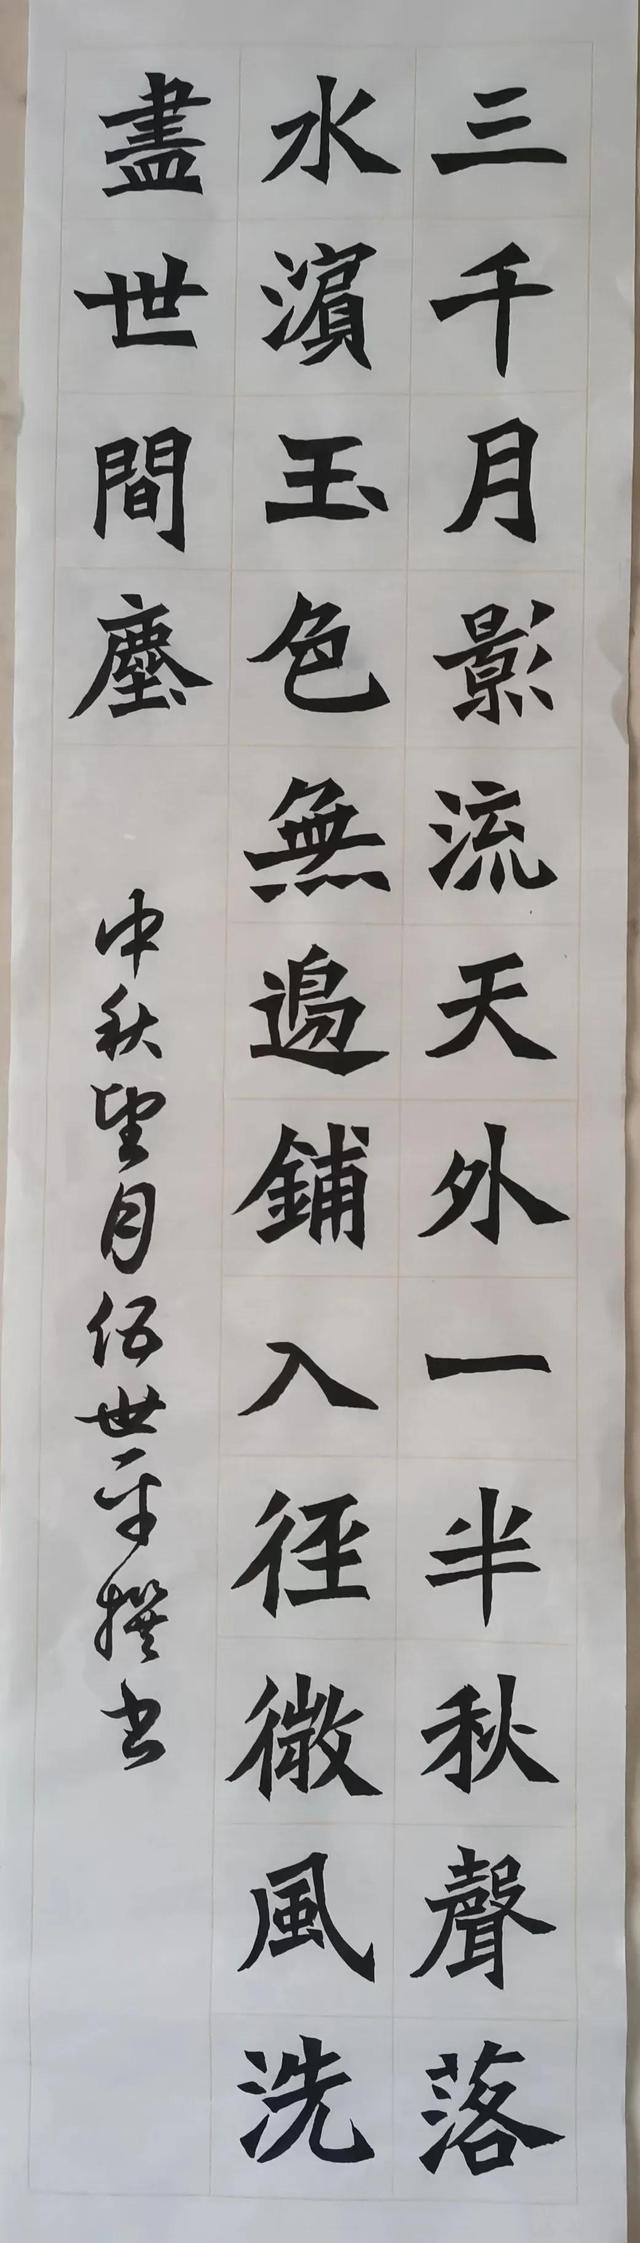 三千月影流天外一半秋聲落
水濵玉色無邊鋪入徑微風洗
盡世間塵
中秋望月伍世平撰书